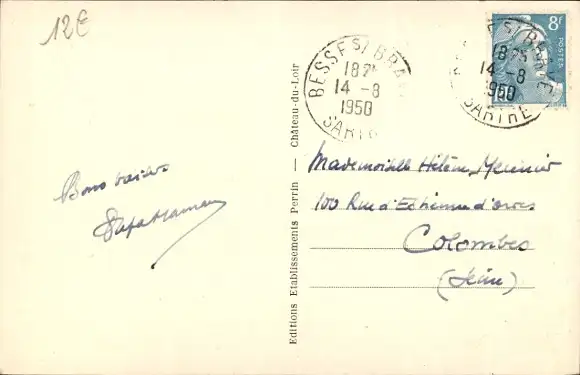 12€
BESSE S/ BRAYE
18 25
14 - 8
1950
SARTHE
8F
POSTES
BESSE S/ BRAYE
18 25
14 - 8
1950
SARTHE
Bons baisers
Editions Etablissements Perrin — Château-du-Loir
Mademoiselle Hélène Mercier
100 Rue d'Estienne d'orves
Colombes
(Seine)